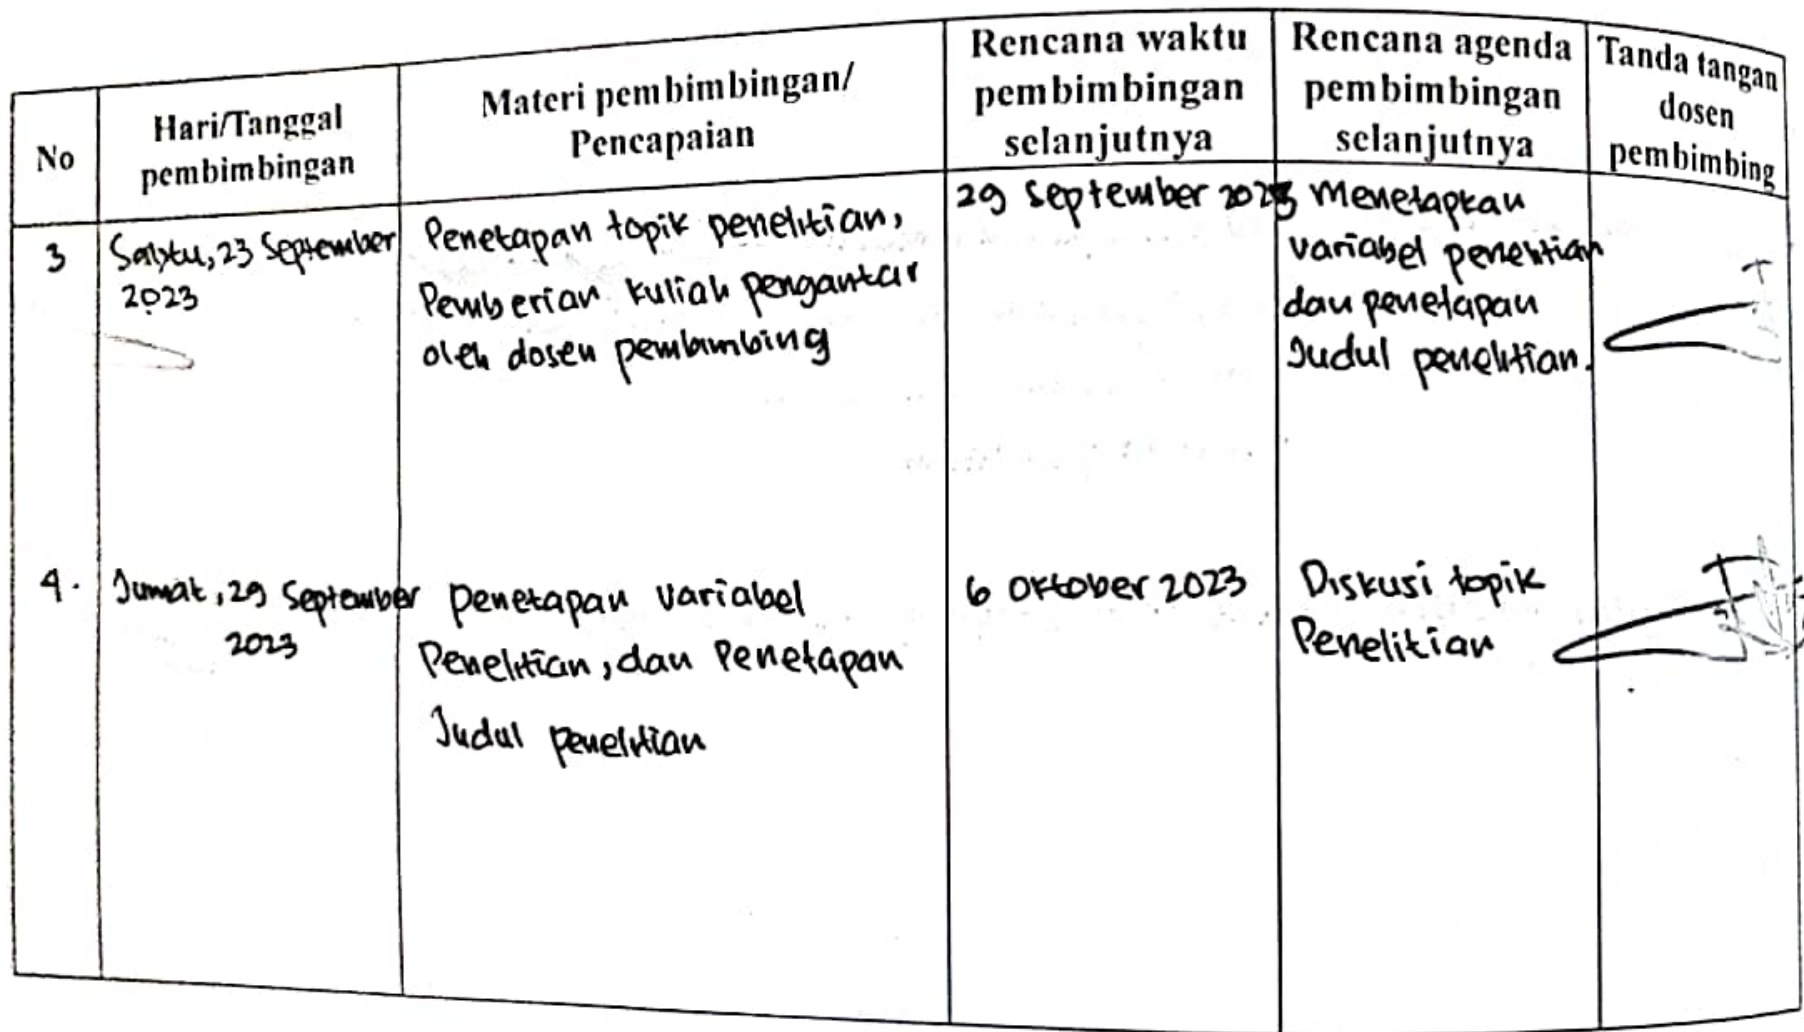 No
Hari/Tanggal
pembimbingan
Materi pembimbingan/
Pencapaian
Rencana waktu
pembimbingan
selanjutnya
Rencana agenda
pembimbingan
selanjutnya
Tanda tangan
dosen
pembimbing
3
Sabtu, 23 September
2023
Penetapan topik penelitian,
Pemberian kuliah pengantar
oleh dosen pembimbing
29 September 2023
Menetapkan
variabel penelitian
dan penetapan
Judul penelitian.
4.
Jumat, 29 September
2023
Penetapan variabel
Penelitian, dan Penetapan
Judul penelitian
6 Oktober 2023
Diskusi topik
Penelitian